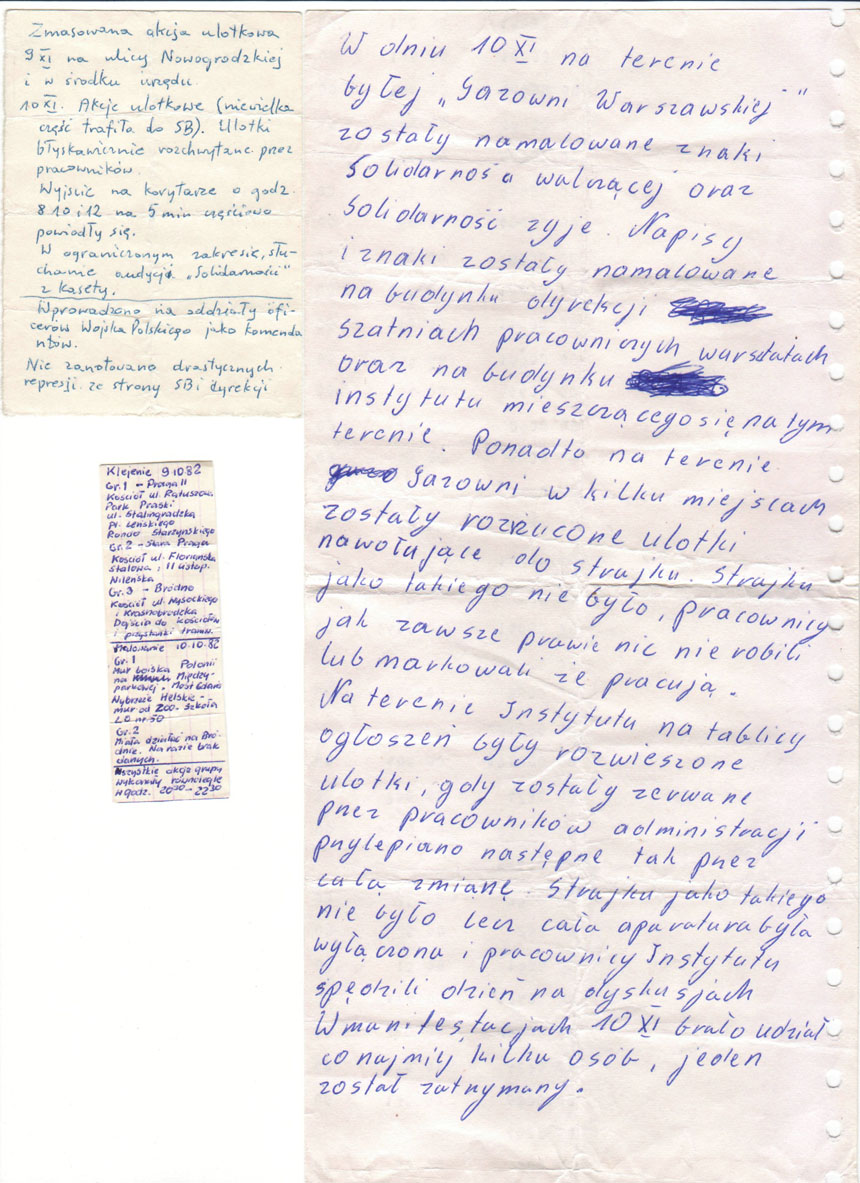 Zmasowana akcja ulotkowa
9 XI na ulicy Nowogrodzkiej
i w środku urzędu.
10 XI. Akcje ulotkowe (niewielka
część trafiła do SB). Ulotki
błyskawicznie rozchwytane przez
pracowników.
Wyjście na korytarze o godz.
8 10 i 12 na 5 min częściowo
powiodły się.
W ograniczonym zakresie, słu-
chanie audycji „Solidarności"
z kasety.
Wprowadzono na oddziały ofi-
cerów Wojska Polskiego jako komenda
ntów.
Nie zanotowano drastycznych
represji ze strony SB i dyrekcji
Klejenie 9 10.82
Gr. 1 – Praga II
Kościół ul. Ratuszowa
Park Praski
ul. Stalingradzka
Pl. Leńskiego
Rondo Starzyńskiego
Gr. 2 – Stara Praga
Kościół ul. Floriańska
Stalowa, 11 Listop.
Wileńska
Gr. 3 – Bródno
Kościół ul. Wysockiego
i Krasnobrodzka
Dojścia do kościołów
i przystanki tramw.
Malowanie 10.10.82
Gr. 1
Mur boiska Polonii
na Między-
parkowej. Most Gdański
Wybrzeże Helskie –
mur od ZOO. Szkoła
LO nr 50
Gr. 2
Miała działać na Bró-
dnie. Na razie brak
danych.
Wszystkie akcje grupy
wykonały równolegle
w godz. 20³⁰ – 22³⁰
W dniu 10 XI na terenie
byłej „Gazowni Warszawskiej"
zostały namalowane znaki
Solidarność walczącej oraz
Solidarność żyje. Napisy
i znaki zostały namalowane
na budynku dyrekcji
szatniach pracowniczych warsztatach
oraz na budynku
instytutu mieszczącego się na tym
terenie. Ponadto na terenie
Gazowni w kilku miejscach
zostały rozrzucone ulotki
nawołujące do strajku. Strajku
jako takiego nie było, pracownicy
jak zawsze prawie nic nie robili
lub markowali że pracują.
Na terenie Instytutu na tablicy
ogłoszeń były rozwieszone
ulotki, gdy zostały zerwane
przez pracowników administracji
przylepiano następne tak przez
całą zmianę. Strajku jako takiego
nie było lecz cała aparatura była
wyłączona i pracownicy Instytutu
spędzili dzień na dyskusjach
W manifestacjach 10 XI brało udział
co najmiej kilku osób, jeden
został zatrzymany.